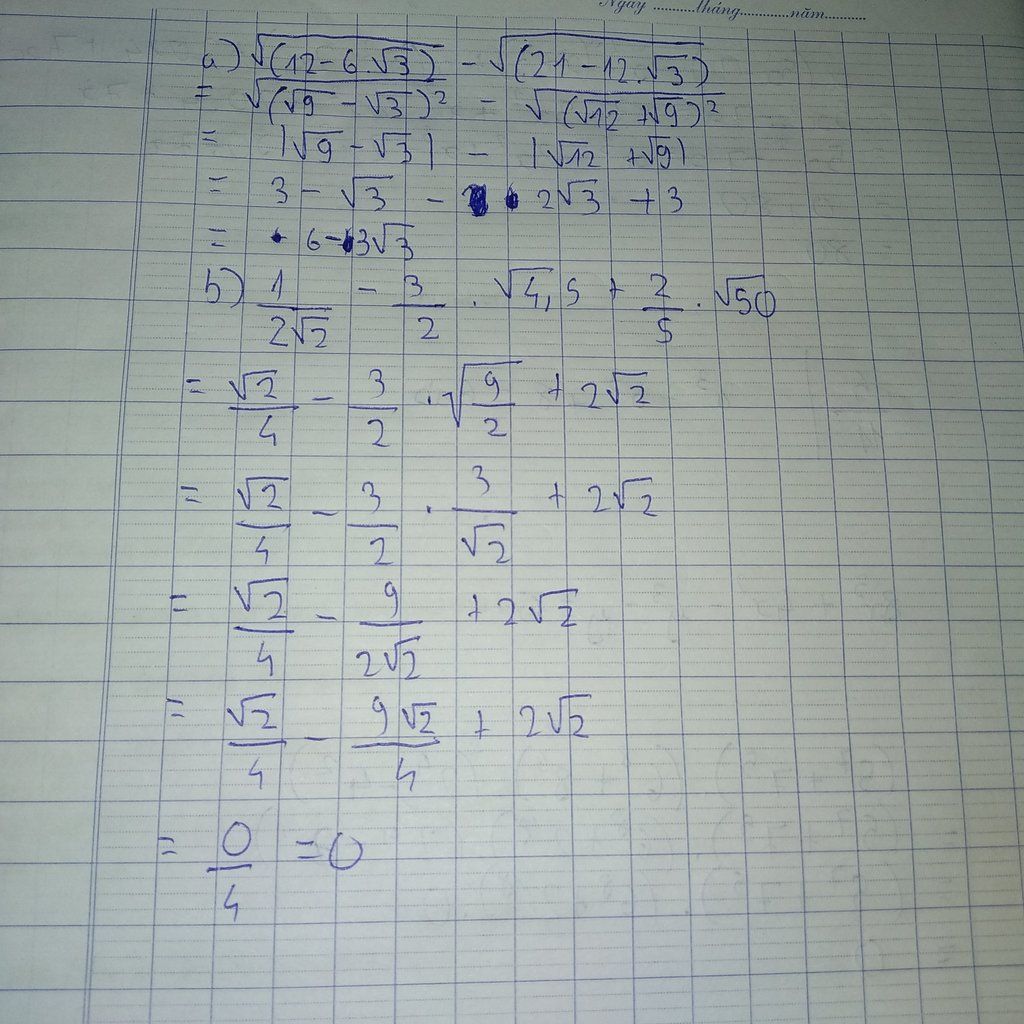 Ngày ............tháng............năm............
a) √(12 - 6.√3) - √(21 - 12.√3)
= √(√9 - √3)² - √(√12 + √9)²
= |√9 - √3| - |√12 + √9|
= 3 - √3 - 2√3 + 3
= 6 - 3√3
b) 1/2√2 - 3/2 . √4,5 + 2/5 . √50
= √2/4 - 3/2 . √9/2 + 2√2
= √2/4 - 3/2 . 3/√2 + 2√2
= √2/4 - 9/2√2 + 2√2
= √2/4 - 9√2/4 + 2√2
= 0/4 = 0